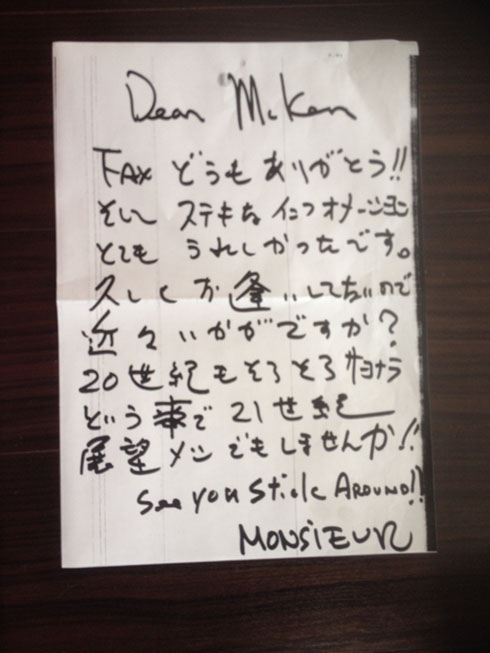 Dear Mr Ken
FAX どうもありがとう!!
そして ステキな インフォメーション
とても うれしかったです。
久しくお逢いしてないので
近々いかがですか?
20世紀もそろそろ サヨナラ
という事で 21世紀
展望メシでもしませんか!!
See you Stick AROUND!!
MONSIEUR